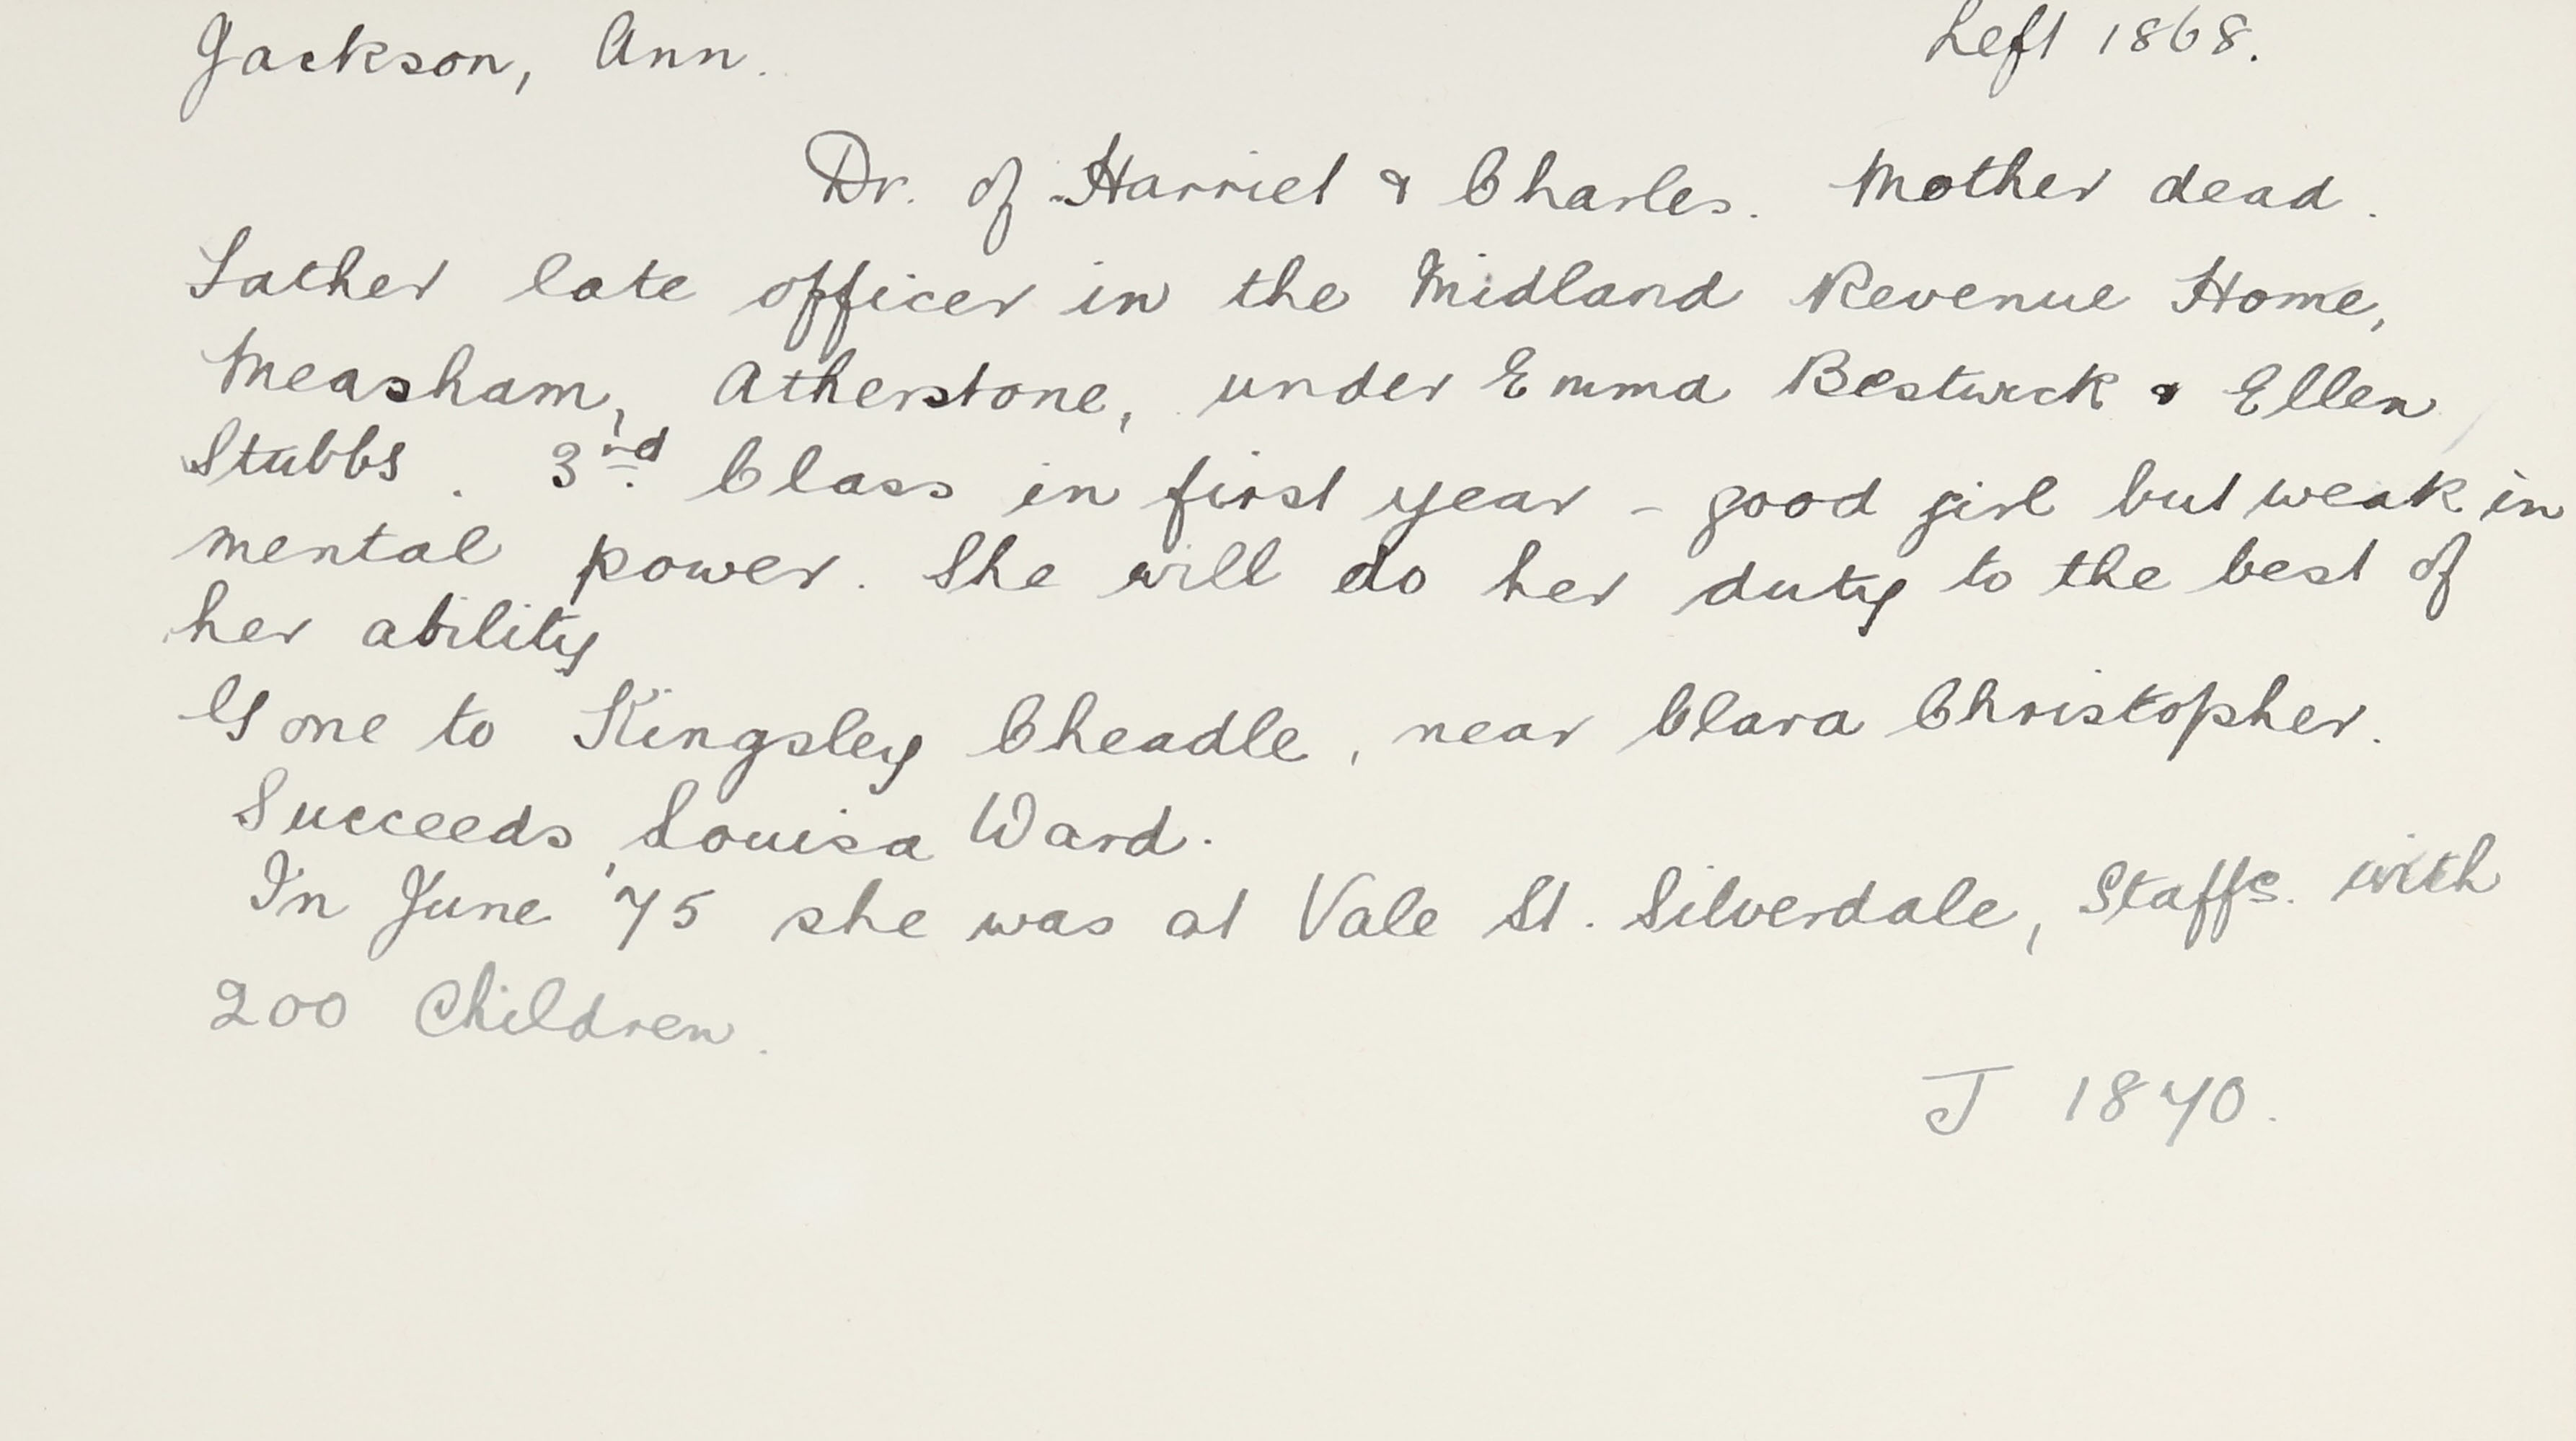 Jackson, Ann. Left 1868.
Dr. of Harriet & Charles. Mother dead.
Father late officer in the Midland Revenue Home,
Measham, Atherstone, under Emma Bestwick & Ellen
Stubbs. 3rd Class in first year - good girl but weak in
mental power. She will do her duty to the best of
her ability
Gone to Kingsley Cheadle, near Clara Christopher.
Succeeds Louisa Ward.
In June '75 she was at Vale St. Silverdale, Staffs. with
200 Children.
J 1870.